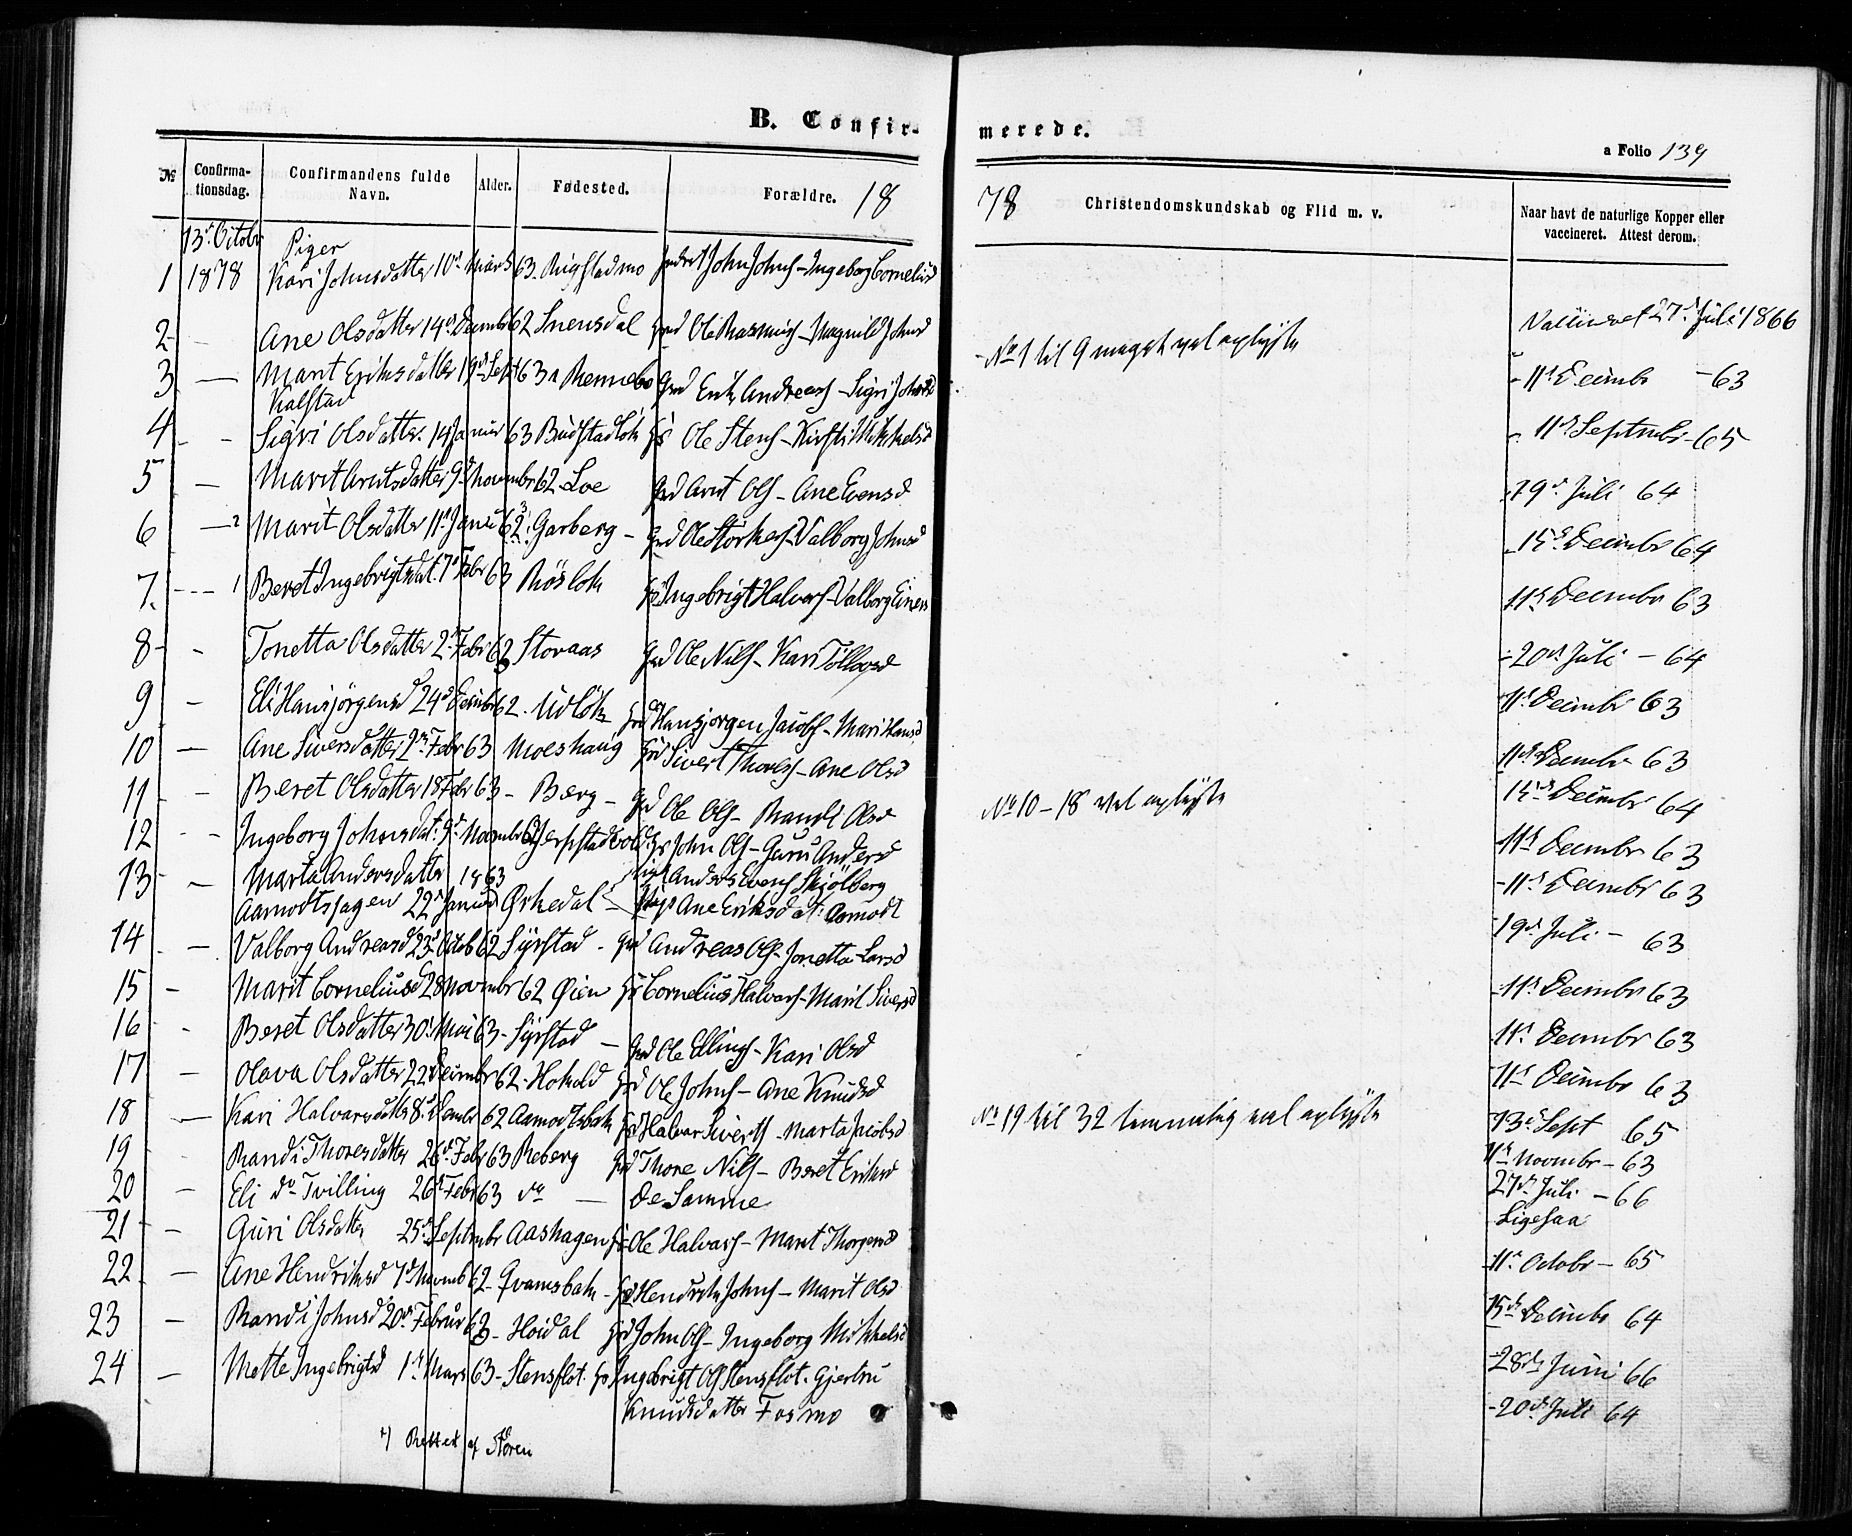 B. Confir-
merede.
a Folio 139
№ Confirma-tionsdag. Confirmandens fulde Navn. Alder. Fødested. Forældre. 18
78 Christendomskundskab og Flid m. v. Naar havt de naturlige Kopper eller vaccineret. Attest derom.
13de Octobr Piger
1 1878 Kari Johnsdatter 10d Marts 63 John Johns - Ingeborg Cornelisd
27d Juli 1866
2 Ane Olsdatter 14d Decmbr 62 Snensdal Ole Rasmus - Magnild Johnsd
No 1 til 9 meget vel oplyste
11d Decmbr - 63
3 Marit Eriksdatter 19d Sept 63 a Rennebo Grd Erik Andreass - Sigri Johnsd
Kalstad
11d Septmbr - 65
4 Sigri Olsdatter 14 Januar 63 Ole Stens - Kirsti Mikkelsd
5 Marit Arntsdatter 9d Novembr 62 Loe Grd Arnt Ols - Ane Evensd
19d Juli 64
6 Marit Olsdatter 11d Janu 62 Garberg - Grd Ole Størkers - Valborg Johnsd
15d Decmbr 64
7. Beret Ingebrigtsdat. 7d Febr 63 Ingebrigt Halvors - Valborg Einers
11d Decmbr 63
8 Tonetta Olsdatter 2d Febr 62 Storaas Grd Ole Nils - Kari Tollevsd
20d Juli - 64
9 Eli Hansjörgensd 24d Decmbr 62. Hansjorgen Jacobs - Mari Hansd
11d Decmbr 63
10 Ane Siversdatter 2d Febr 63 Moeshaug Sivert Thores - Ane Olsd
11d Decmbr 63
11 Beret Olsdatter 18 Febr 63 - Berg - Grd Ole Ols - Randi Olsd
No 10 - 18 vel oplyste
15d Decmbr 64
12 Ingeborg Johnsdat. 9d Novmbr 62 John Ols - Guru Andersd
11d Decmbr 63
13 Marta Andersdatter 1863 Anders Evens Skjølberg
Aamodtshagen 22d Januar Ørkedal - Pige Ane Eriksdat: Aamodt
11d Decmbr 63
14 Valborg Andreasd 23d Octob 62 Syrstad - Grd Andreas Ols - Jonetta Larsd
19d Juli - 63
15 Marit Corneliusd 28 Novmbr 62 Øien Cornelius Halvors - Marit Siversd
11d Decmbr 63
16 Beret Olsdatter 30d Mai 63 - Syrstad - Grd Ole Ellings - Kari Olsd
11d Decmbr 63
17 Olava Olsdatter 22 Decmbr 62 - Hokold Ole Johns - Ane Knudsd
11d Decmbr 63
18 Kari Halvorsdatter 8d 62 Aamodtsbak Halvor Siverts - Marta Jacobsd
No 19 til 32 temmelig vel oplyste
13d Sept 65
19 Randi Thoresdatter 26d Febr 63 Reberg Grd Thore Nils - Beret Eriksd
11d Novmbr - 63
20 Eli do Tvilling 26d Febr 63 do - De Samme
27d Juli - 66
Ligesaa
21 Guri Olsdatter 25d Septmbr Aashagen Ole Halvors - Marit Thorgersd
11d Octobr - 65
22 Ane Hendriksd 7d Novmb 62 - Qvamsbak - Hendrik Johns - Marit Olsd
15d Decmbr 64
23 Randi Johnsd 20d Februar 63 - Hoidal John Ols - Ingeborg Mikkelsd
28d Juni 66
24 Mette Ingebrigtsd 1d Mars 63 - Stensflot. Ingebrigt Ols Stensflot. Gjertru
Knudsdatter Fosmo
20d Juli 64
*) Rettet af Støren